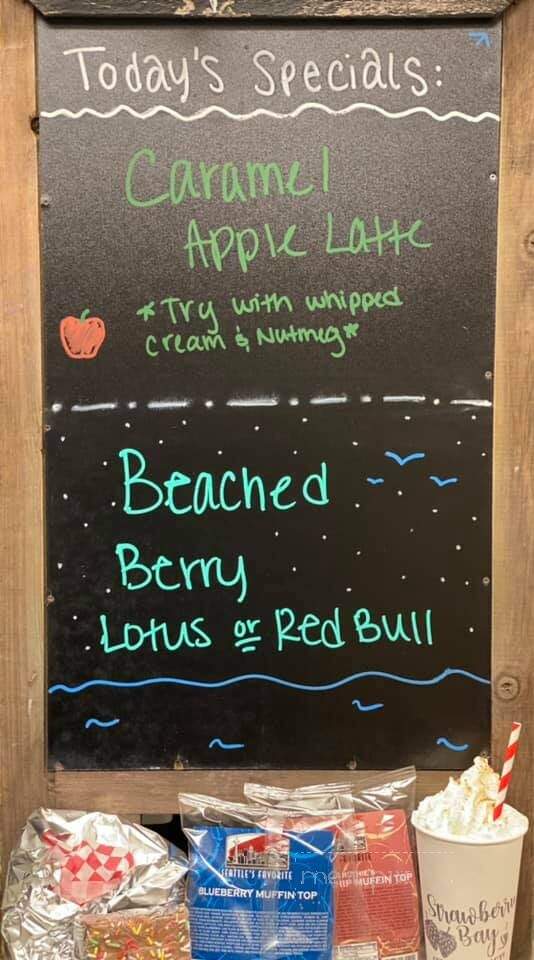 Today's Specials:
Caramel
Apple Latte
*Try with whipped
cream & Nutmeg*
Beached
Berry
Lotus or Red Bull
SEATTLE'S FAVORITE
BLUEBERRY MUFFIN TOP
FAVORITE
MUFFIN TOP
Strawberry
Bay